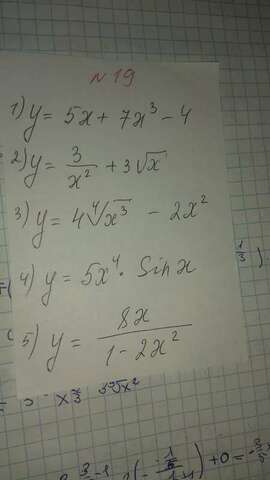 № 19
1) y = 5x + 7x³ - 4
2) y = 3/x² + 3√x
3) y = 4 ⁴√x³ - 2x²
4) y = 5x⁴ · Sin x
5) y = 8x / (1 - 2x²)